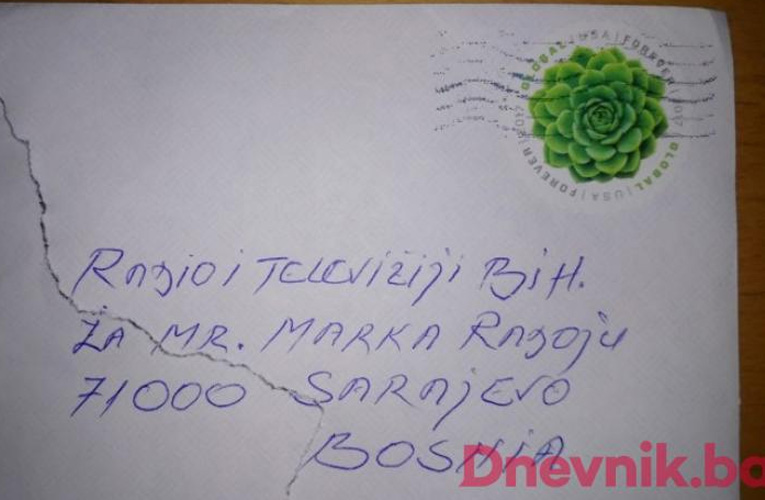 GLOBAL | USA | FOREVER | 2017 GLOBAL | USA | FOREVER | 2017
Radio i Televiziji BiH.
ZA MR. MARKA Radoju
71000 SARAJEVO
BOSNIA
Dnevnik.ba